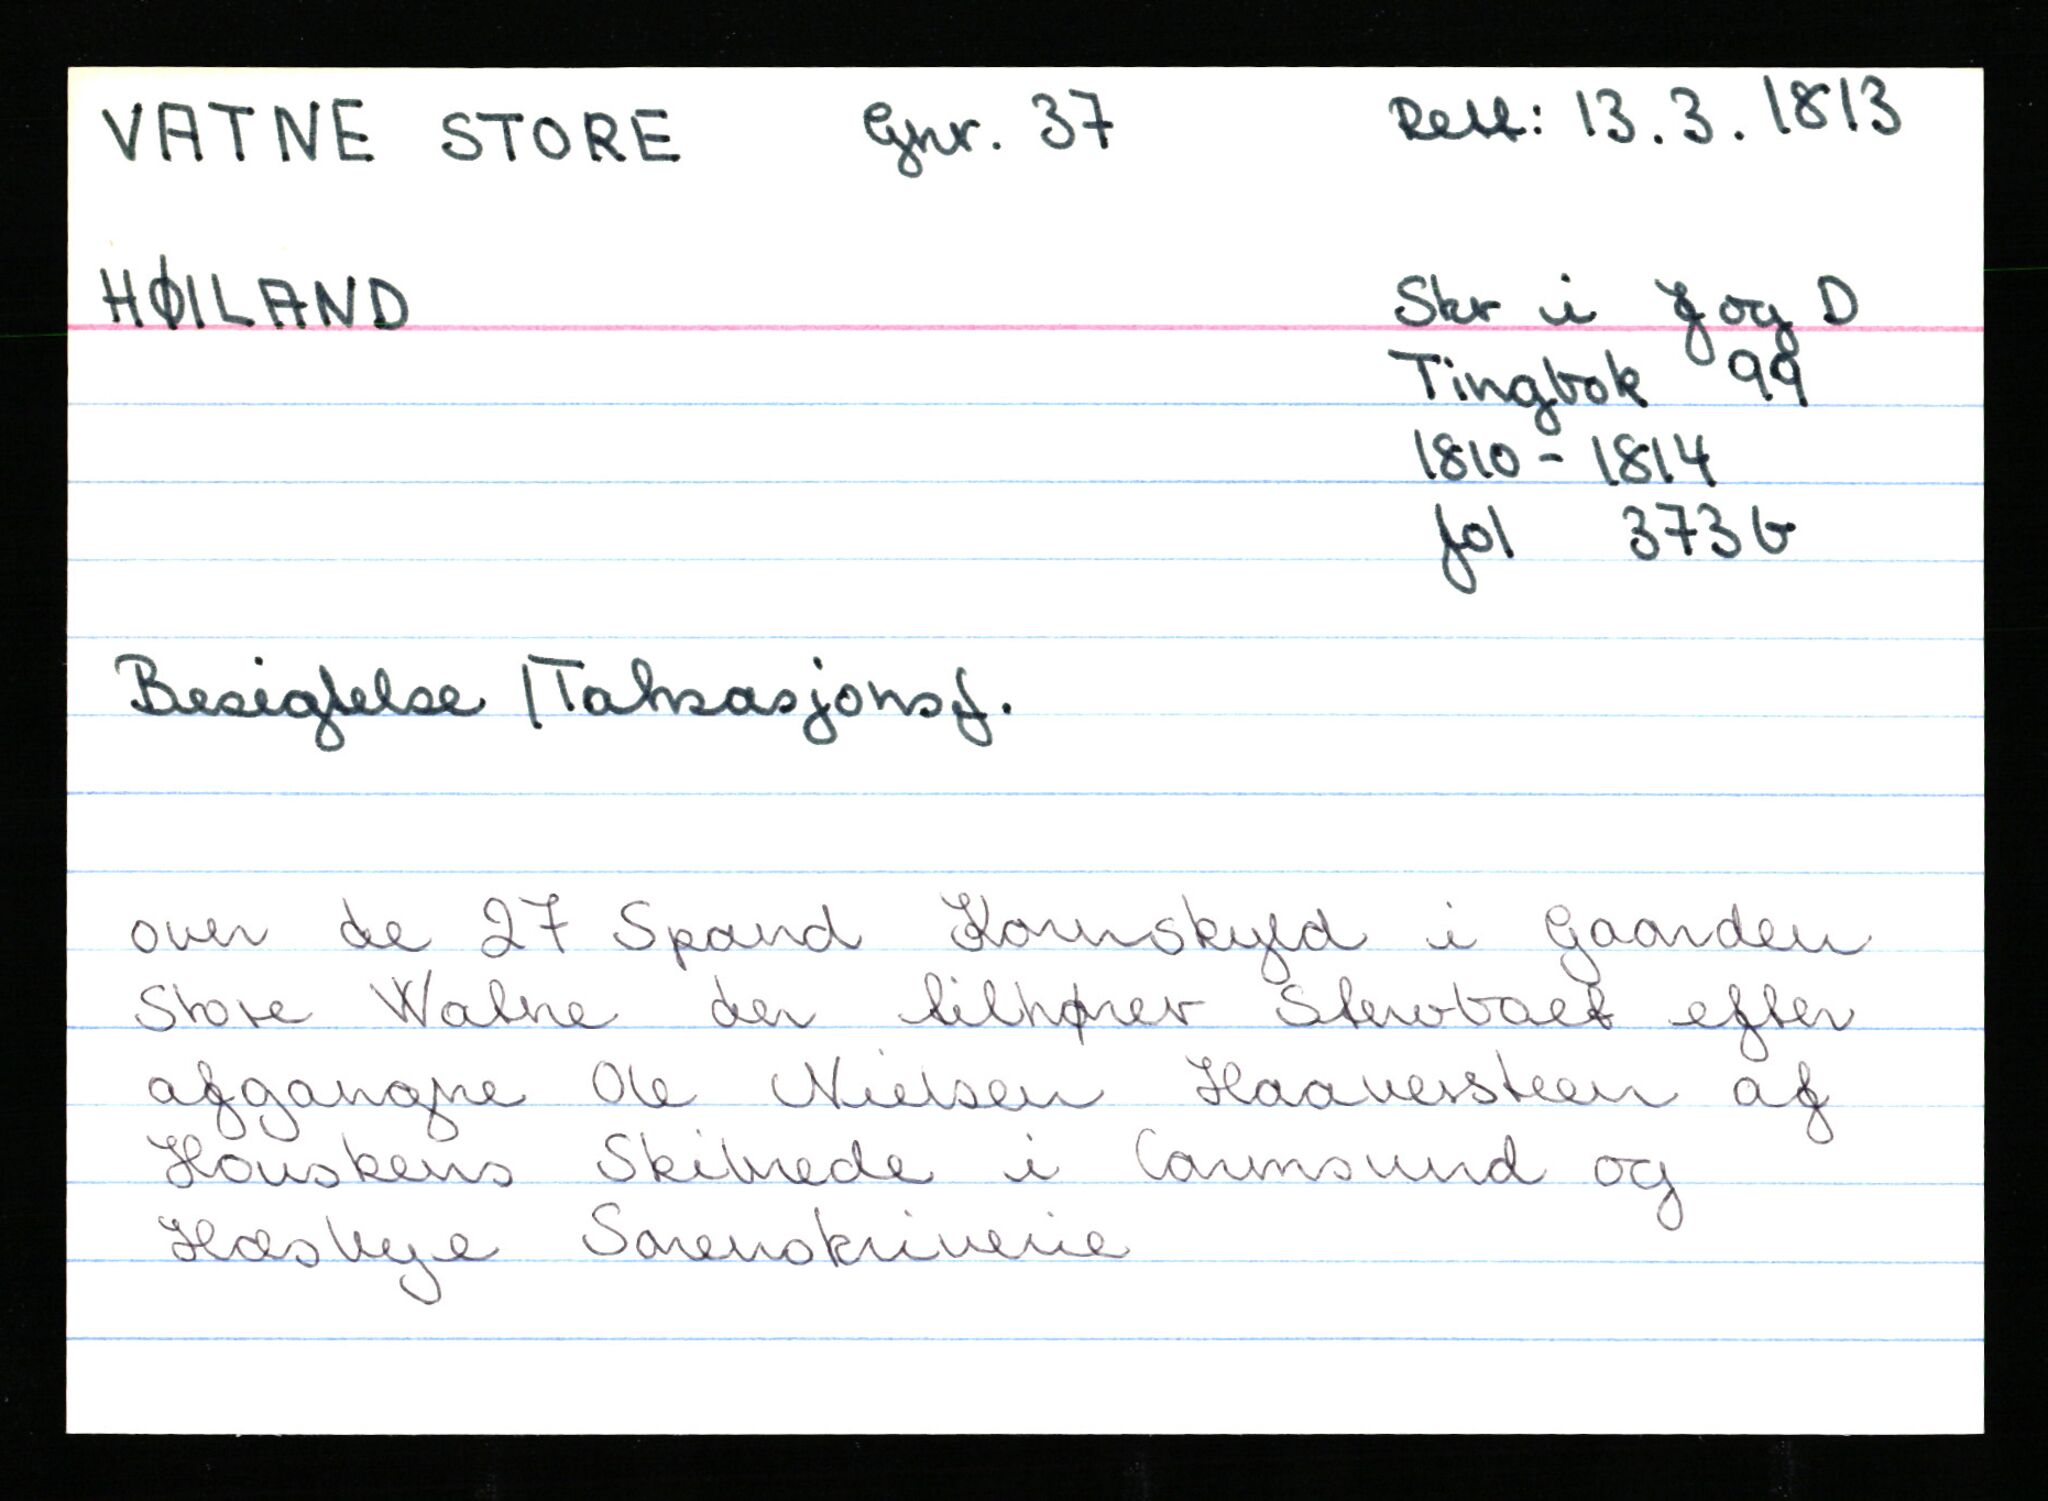 VATNE STORE Gnr. 37 Rett: 13.3.1813
HØILAND
Skr i J og D
Tingbok 99
1810 - 1814
fol 373 b
Besigtelse / Taksasjonsf.
over de 27 Spand Kornskyld i Gaarden
Store Watne der tilhører Sterboet efter
afgangne Ole Nielsen Haaversteen af
Houskens Skibrede i Carmsund og
Hæsbye Sorenskriverie